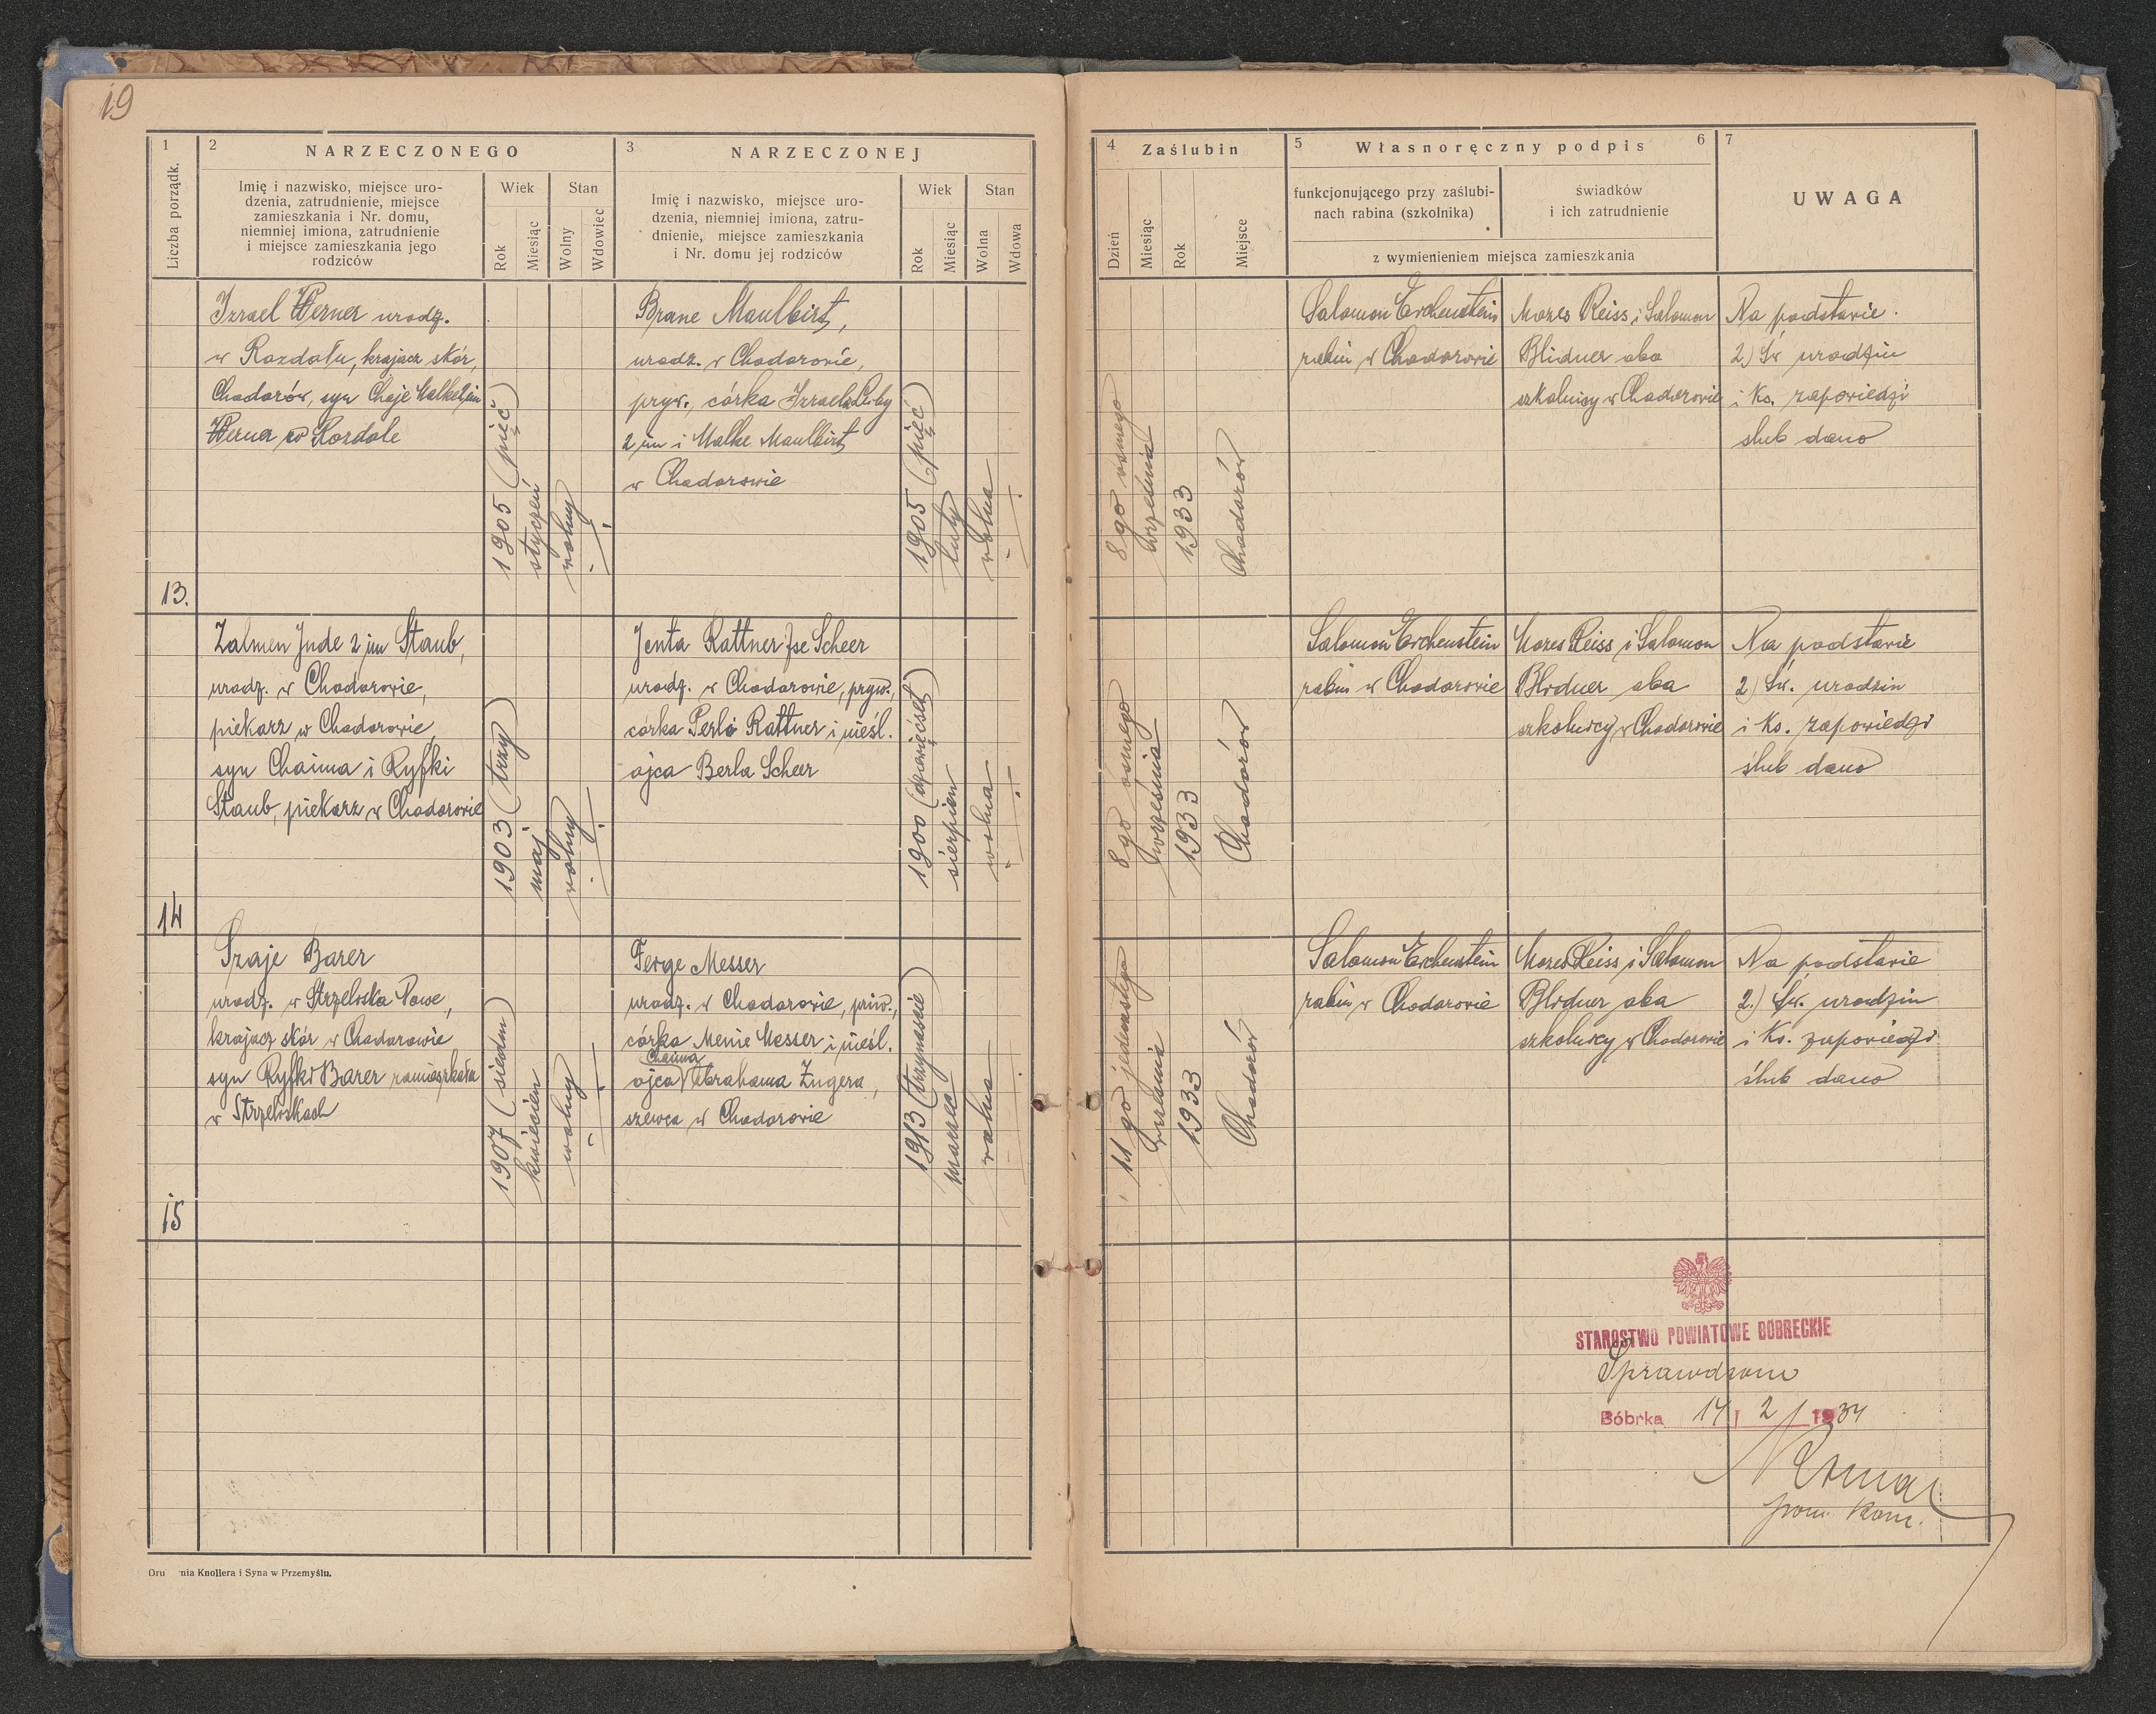 19
1
Liczba porządk.
2
NARZECZONEGO
Imię i nazwisko, miejsce uro-
dzenia, zatrudnienie, miejsce
zamieszkania i Nr. domu,
niemniej imiona, zatrudnienie
i miejsce zamieszkania jego
rodziców
Wiek
Rok
Miesiąc
Stan
Wolny
Wdowiec
3
NARZECZONEJ
Imię i nazwisko, miejsce uro-
dzenia, niemniej imiona, zatru-
dnienie, miejsce zamieszkania
i Nr. domu jej rodziców
Wiek
Rok
Miesiąc
Stan
Wolna
Wdowa
4
Zaślubin
Dzień
Miesiąc
Rok
Miejsce
5
Własnoręczny podpis
6
funkcjonującego przy zaślubi-
nach rabina (szkolnika)
świadków
i ich zatrudnienie
z wymienieniem miejsca zamieszkania
7
UWAGA
13.
Izrael Werner urodz.
w Rozdołu, krajacz skór,
Chodorów, syn Chaje Malke 2 im
Werner w Rozdole
1905 (pięć)
styczeń
wolny
Brane Maulbirt,
urodz. w Chodorowie,
pryw., córka Izraela Leiby
2 im i Malke Maulbirt
w Chodorowie
1905 (pięć)
luty
wolna
8 go osmego
września
1933
Chodorów
Salomon
rabin w Chodorowie
Mozes Reiss i Salomon
Blidner oba
szkolnicy w Chodorowie
Na podstawie
2) Św urodzin
i Ks. zapowiedzi
slub dano
14
Zalmen Jude 2 im Staub,
urodz. w Chodorowie,
piekarz w Chodorowie
syn Chaima i Ryfki
Staub, piekarz w Chodorowie
1903 (trzy)
maj
wolny
Jenta Rattner fse Scheer
urodz. w Chodorowie, pryw.,
córka Perli Rattner i nieśl.
ojca Berla Scheer
1900 (dziewięćset)
sierpien
wolna
8 go osmego
września
1933
Chodorów
Salomon
rabin w Chodorowie
Mozes Reiss i Salomon
Blidner oba
szkolnicy w Chodorowie
Na podstawie
2) Św. urodzin
i Ks. zapowiedzi
ślub dano
15
Szaje Barer
urodz. w Strzeliska Nowe,
krajacz skór w Chodorowie
syn Ryfki Barer zamieszkała
w Strzeliskach
1907 (siedm)
kwiecien
wolny
Feige Messer
urodz. w Chodorowie, priw.,
córka Menie Messer i nieśl.
Chaima
ojca Abrahama Zugera,
szewca w Chodorowie
1913 (trzynaście)
marzec
wolna
11 go jedenastego
września
1933
Chodorów
Salomon
rabin w Chodorowie
Mozes Reiss i Salomon
Blidner oba
szkolnicy w Chodorowie
Na podstawie
2.) Św. urodzin
i Ks. zapowiedzi
ślub dano
STAROSTWO POWIATOWE BOBRECKIE
Sprawdzono
Bóbrka 14/2 1934
Dru nia Knollera i Syna w Przemyślu.